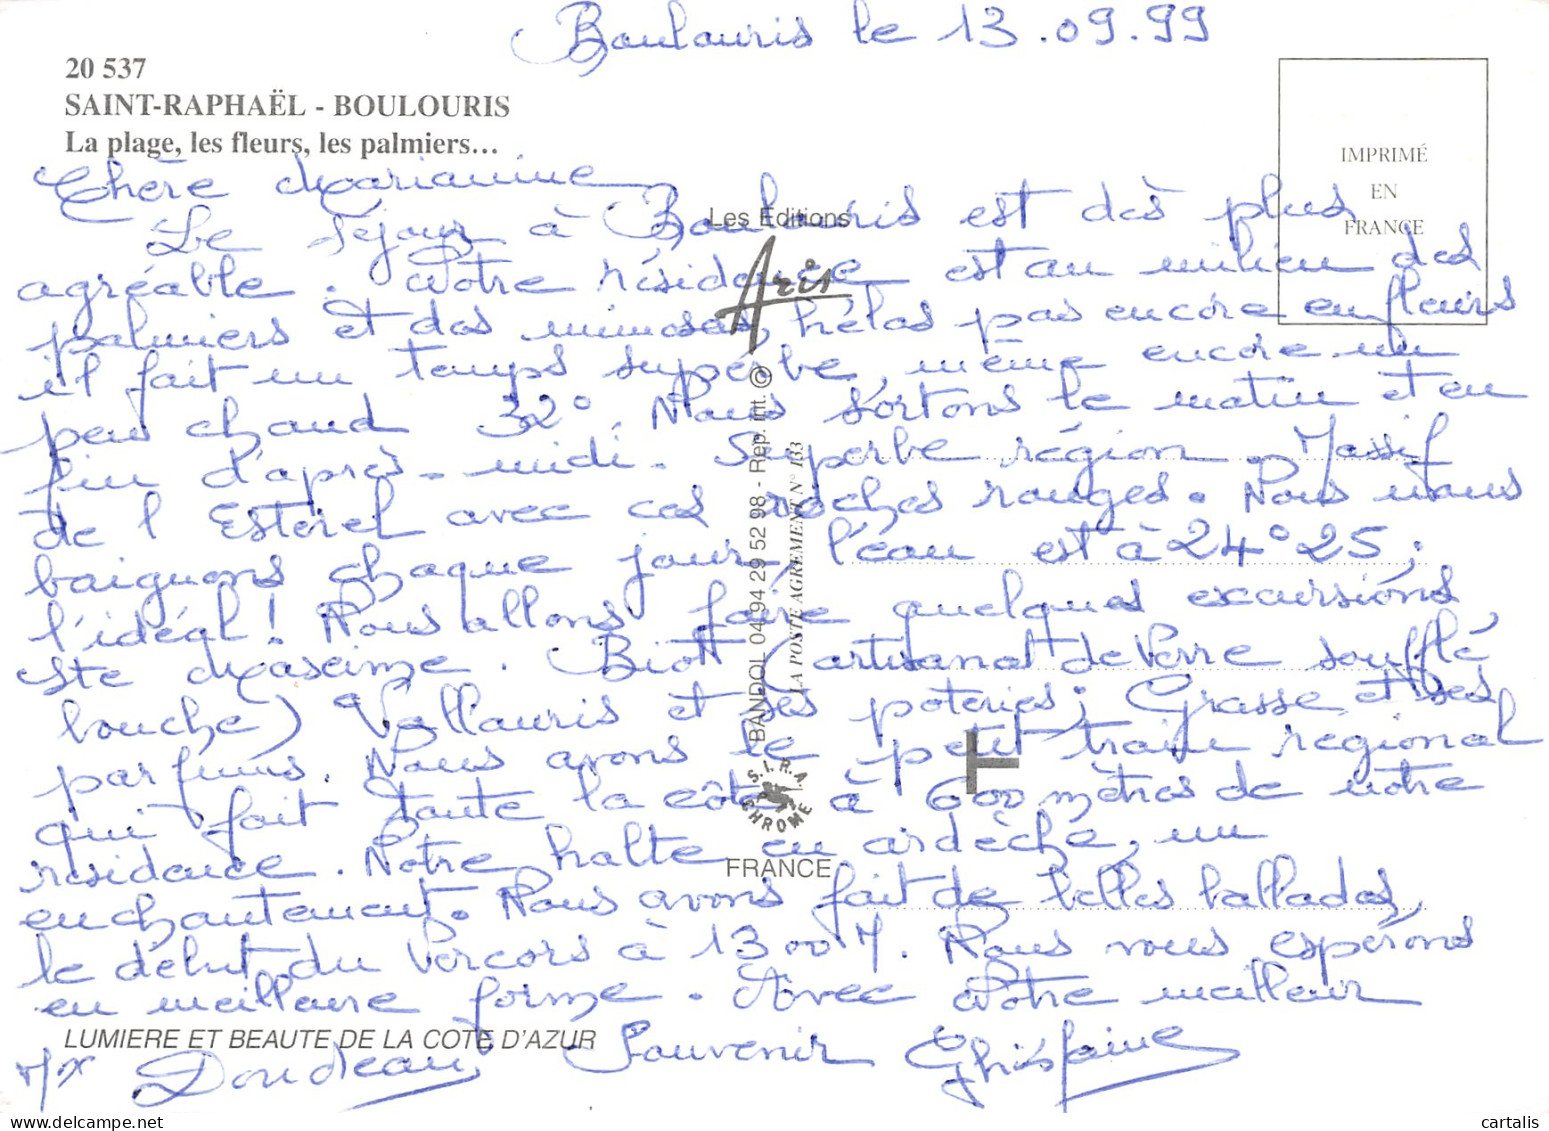 Boulouris le 13.09.99
20 537
SAINT-RAPHAËL - BOULOURIS
La plage, les fleurs, les palmiers...
IMPRIMÉ
EN
FRANCE
Chère Marianine,
Le séjour à Boulouris est des plus
agréable. Notre résidence est au milieu des
palmiers et des mimosas, hélas pas encore en fleurs
il fait un temps superbe, même encore un
peu chaud 32°. Nous sortons le matin et en
fin d'après-midi. Superbe région. Massif
de l'Esterel avec ces roches rouges. Nous nous
baignons chaque jour, l'eau est à 24°25;
l'idéal! Nous allons faire quelques excursions
Ste Maxime. Biot (artisanat de Verre soufflé
bouche) Vallauris et ses poteries; Grasse et ses
parfums. Nous avons le petit train régional
qui fait toute la côte à 600 mètres de notre
résidence. Notre halte en ardèche, un
enchantement. Nous avons fait de belles ballades,
le début du Vercors à 1300 M. Nous vous espérons
en meilleure forme. Avec Notre meilleur
Souvenir Ghislaine
Mr Dondeau
Les Editions
Aris
BANDOL 04 94 29 52 98 - Rep. int. ©
LA POSTE AGREMENT N° 133
S.I.R.A.
CHROME
FRANCE
LUMIERE ET BEAUTE DE LA COTE D'AZUR
cartalis